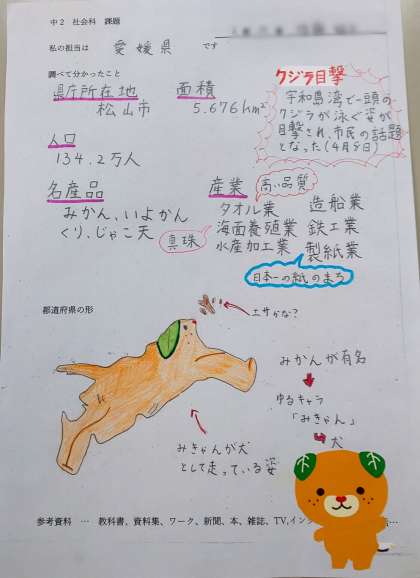 中2 社会科 課題
私の担当は 愛媛県 です
調べて分かったこと
県庁所在地
松山市
面積
5.676km²
クジラ目撃
宇和島湾で一頭の
クジラが泳ぐ姿が
目撃され、市民の話題
となった(4月8日)
人口
134.2万人
名産品
みかん、いよかん
くり、じゃこ天
産業
高い品質
タオル業
海面養殖業
水産加工業
真珠
造船業
鉄工業
製紙業
日本一の紙のまち
都道府県の形
エサかな?
みかんが有名
ゆるキャラ
「みきゃん」
犬
みきゃんが犬
として走っている姿
参考資料 … 教科書、資料集、ワーク、新聞、本、雑誌、TV,イン